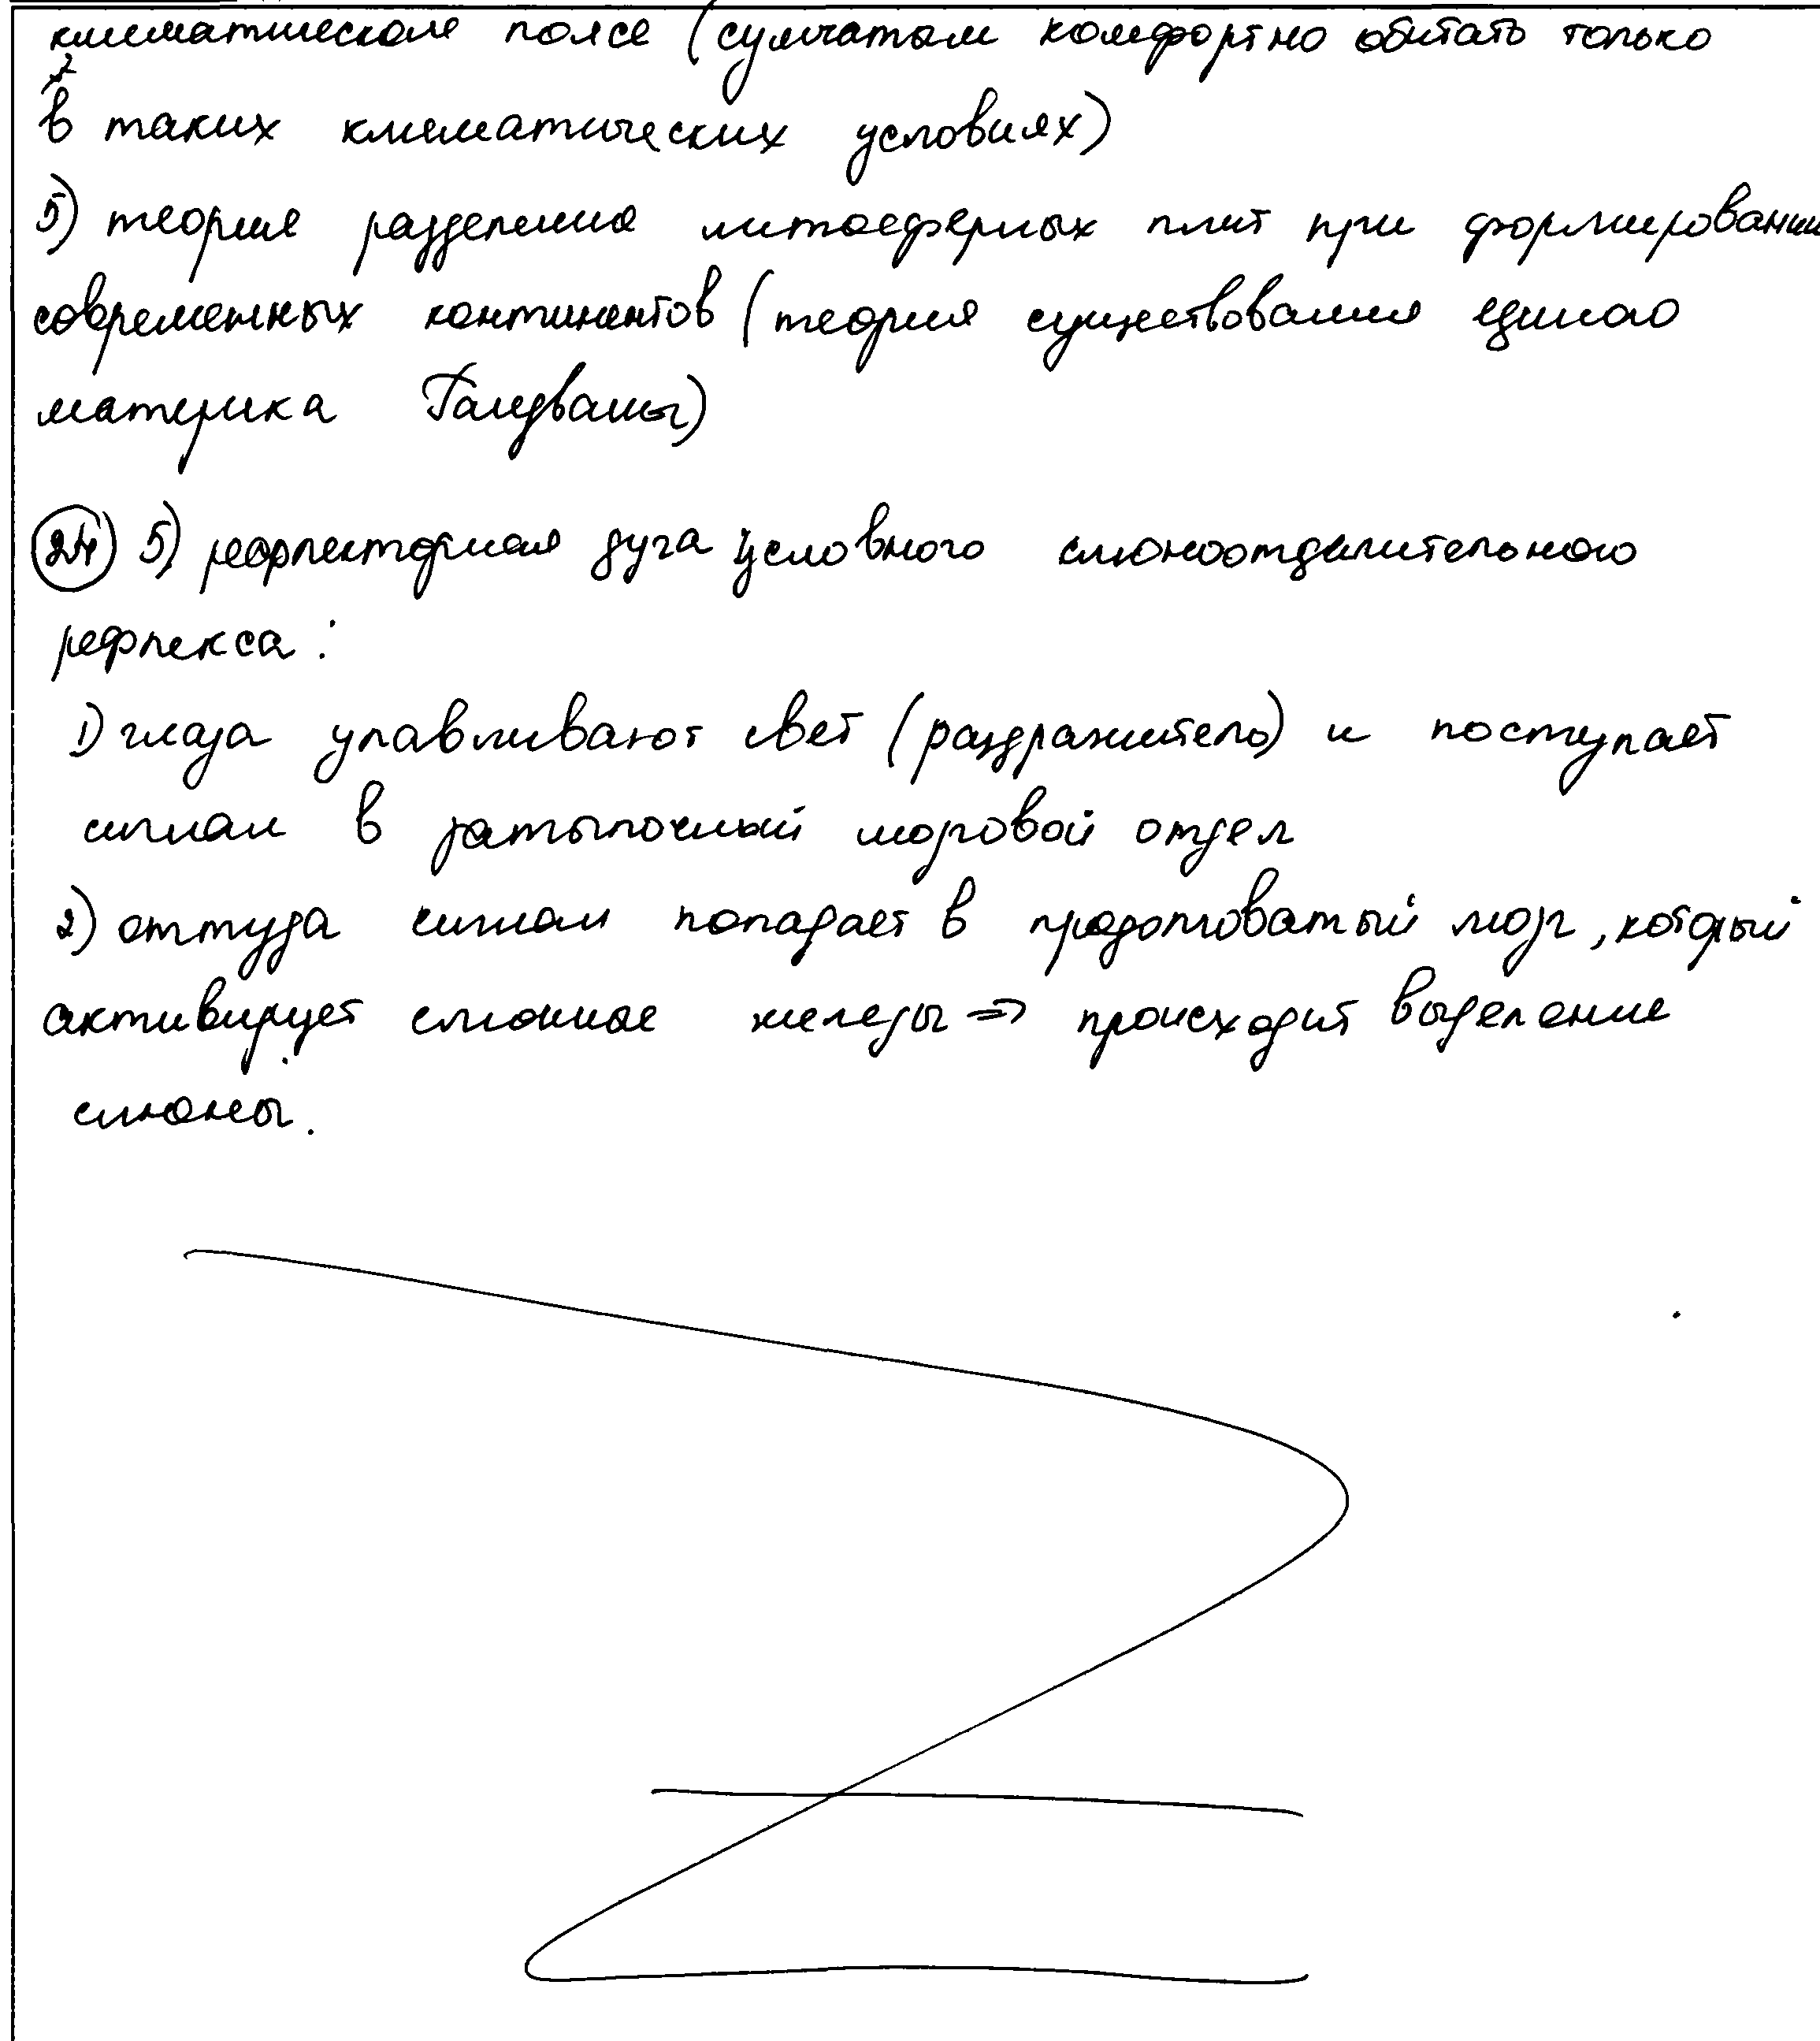 климатическом поясе (сумчатым комфортно обитать только
в таких климатических условиях)
5) теория разделения литосферных плит при формировании
современных континентов (теория существования единого
материка Гандваны)
24) 5) рефлекторная дуга условного слюноотделительного
рефлекса:
1) глаза улавливают свет (раздражитель) и поступает
сигнал в затылочный мозговой отдел
2) оттуда сигнал попадает в продолговатый мозг, который
активирует слюнные железы => происходит выделение
слюны.